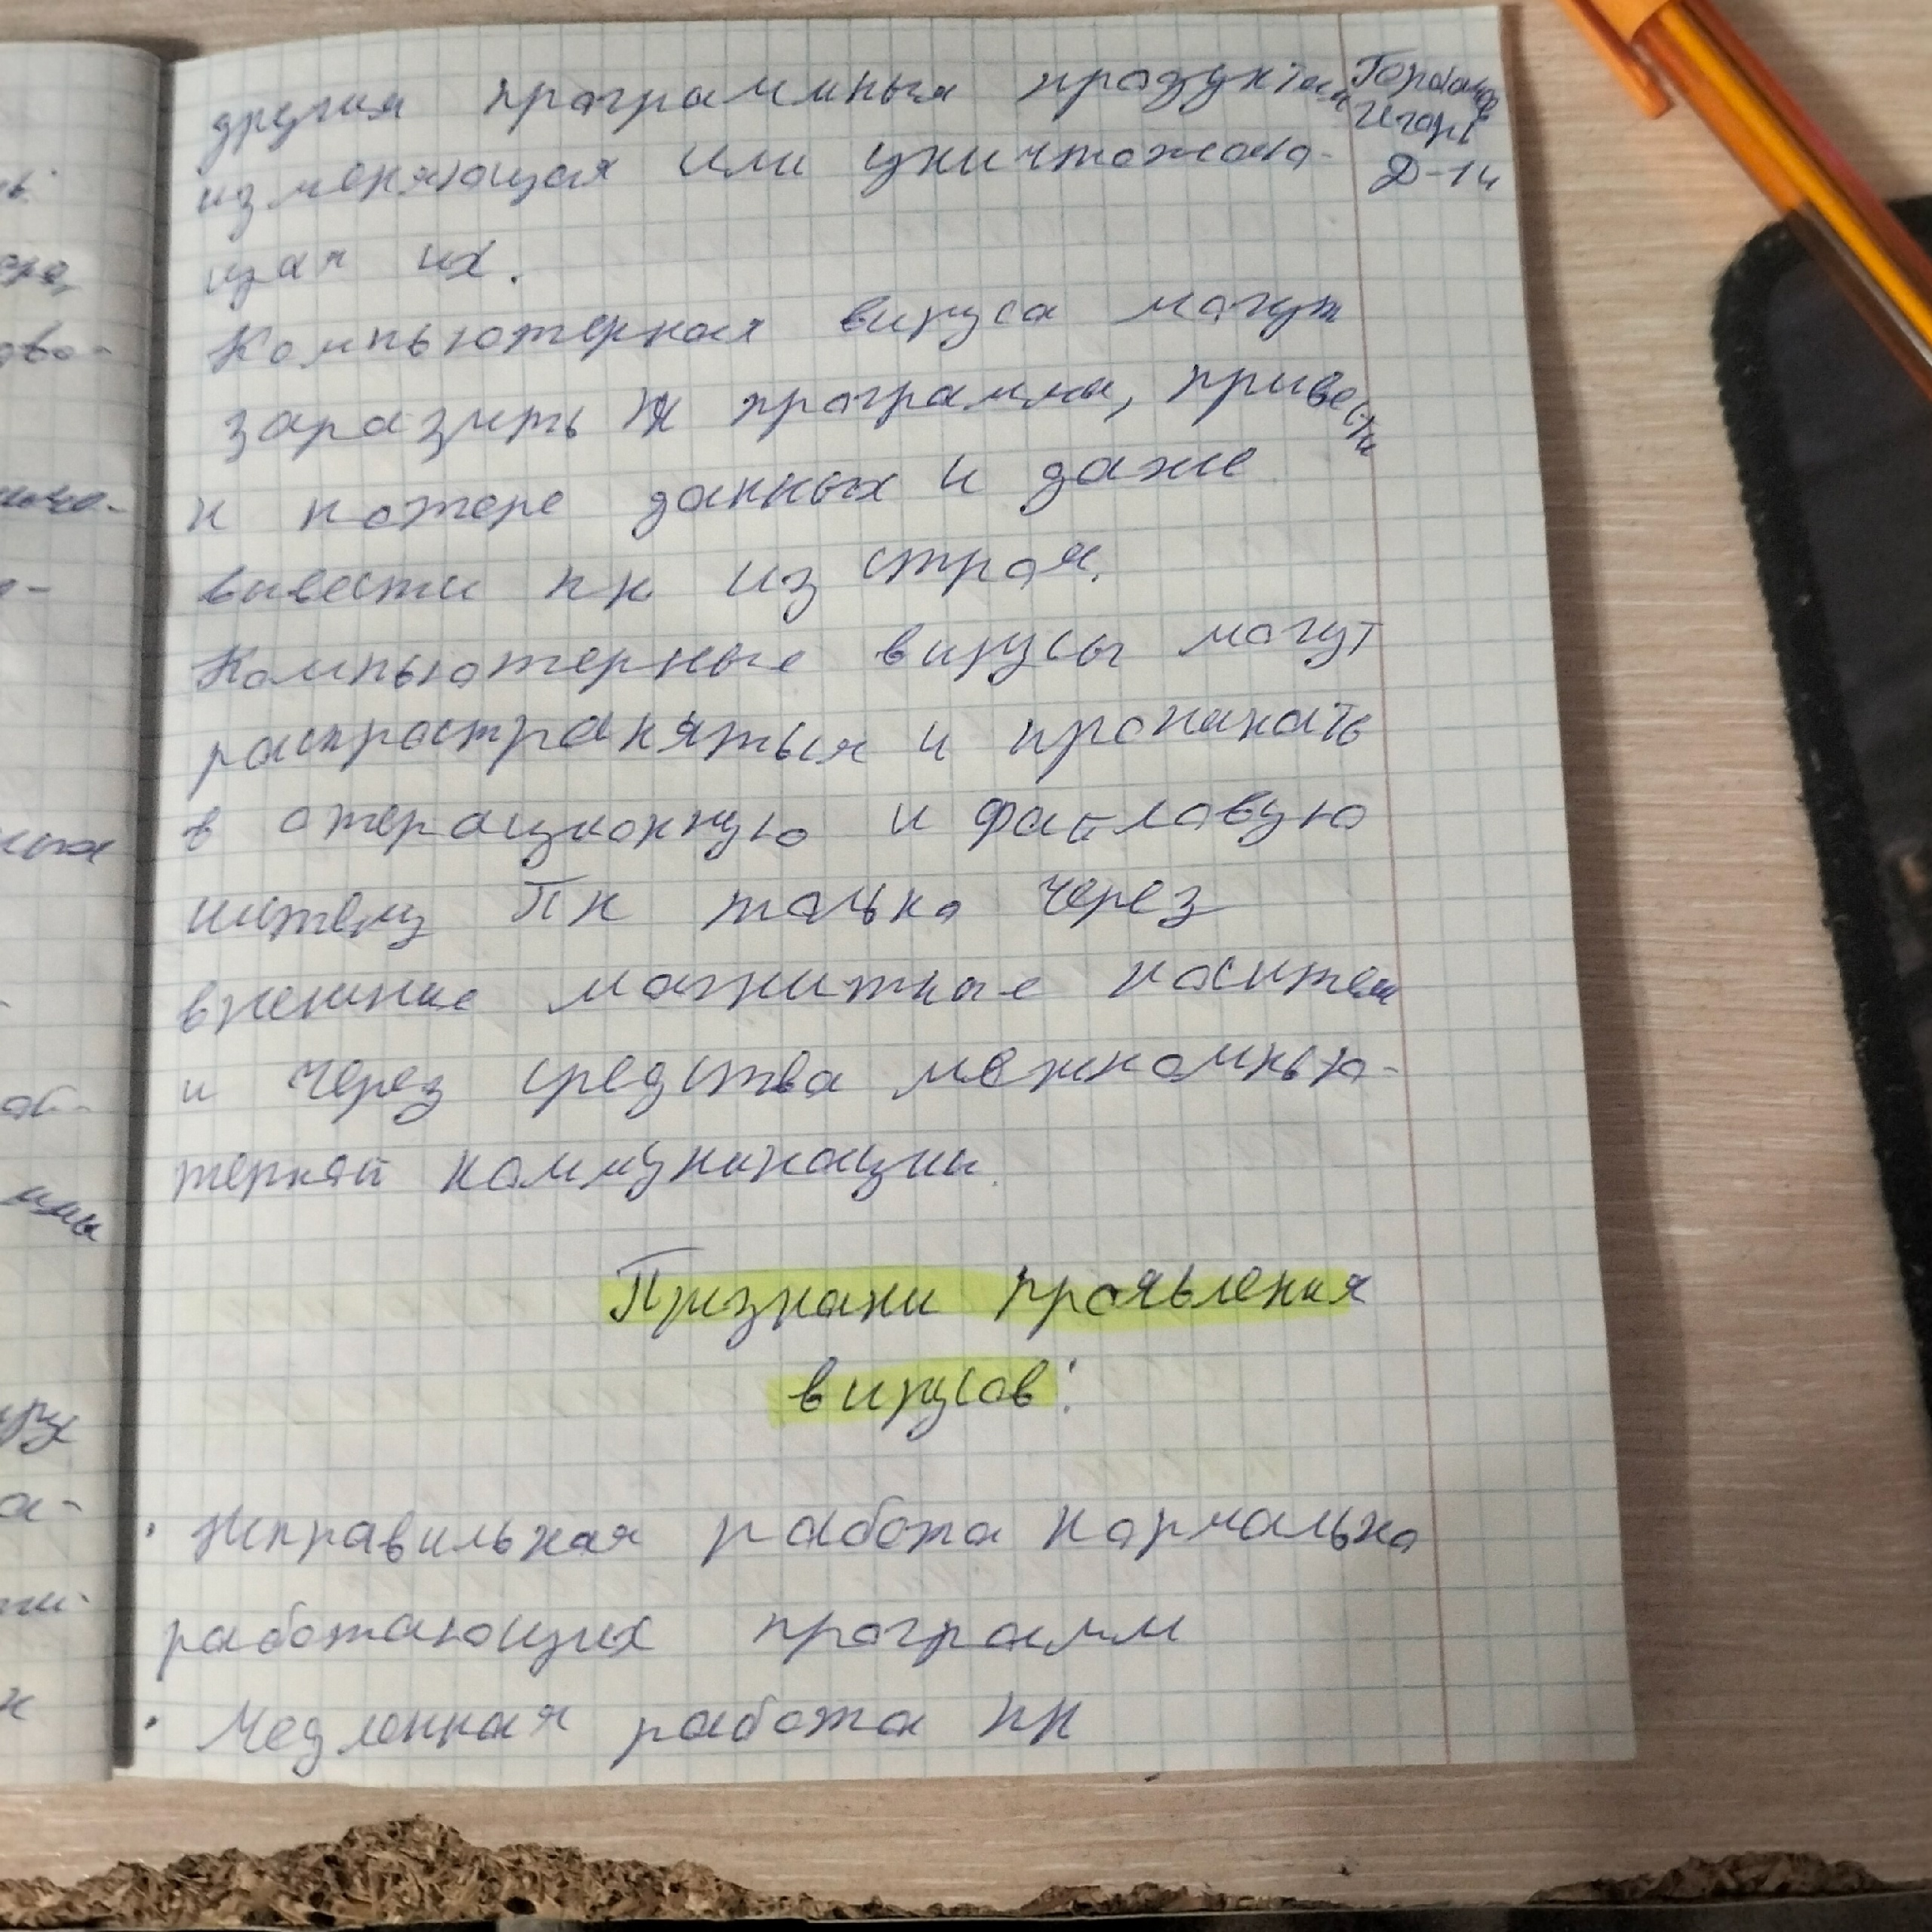 другия програмныя продуктыя
изменяющая или уничтожаю-
щая их.
Компьютерная вируса могут
заразить программы, привести
к потере данных и даже
вивести пк из строя.
Компьютерные вирусы могут
распространяться и проникать
в операционную и файловую
систему Пк только через
внешние магнитные носители
и через средства межкомпью-
терной коммуникации.
Признаки проявления
вирусов:
• Неправильная работа нормально
работающих программ
• Медленная работа пк
Игорь
Д-14